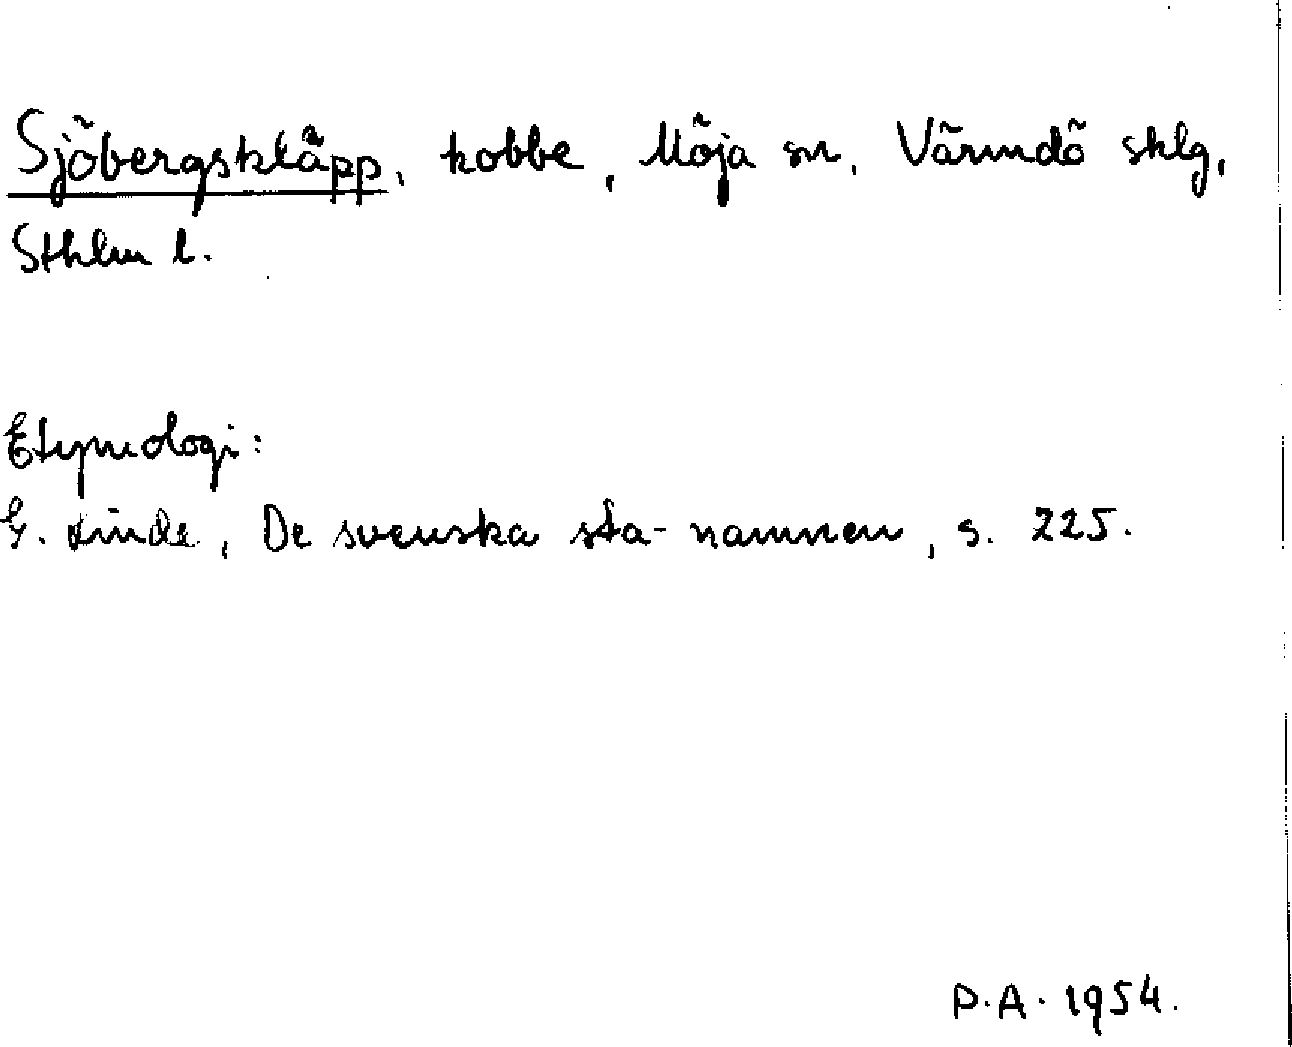 Sjöbergskläpp, kobbe, Möja sn, Värmdö sklg,
Sthlm l.
Etymologi:
G. Linde, De svenska sta-namnen, s. 225.
P.A. 1954.